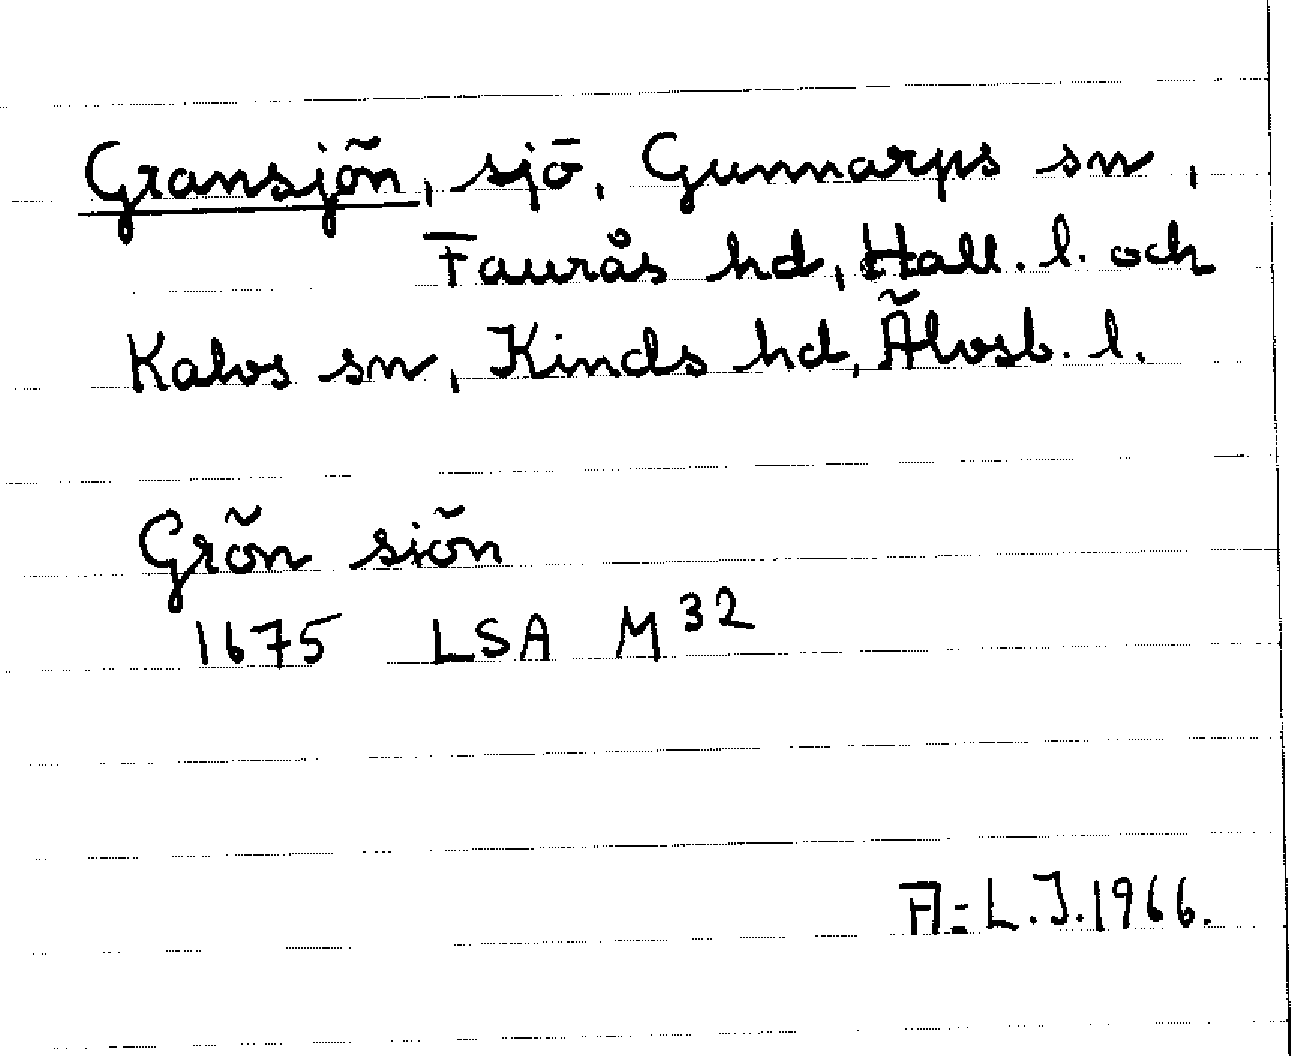 Gransjön, sjö, Gunnarps sn,
Faurås hd, Hall. l. och
Kalvs sn, Kinds hd, Älvsb. l.
Grön siön
1675 LSA M 32
A:L.J.1966.